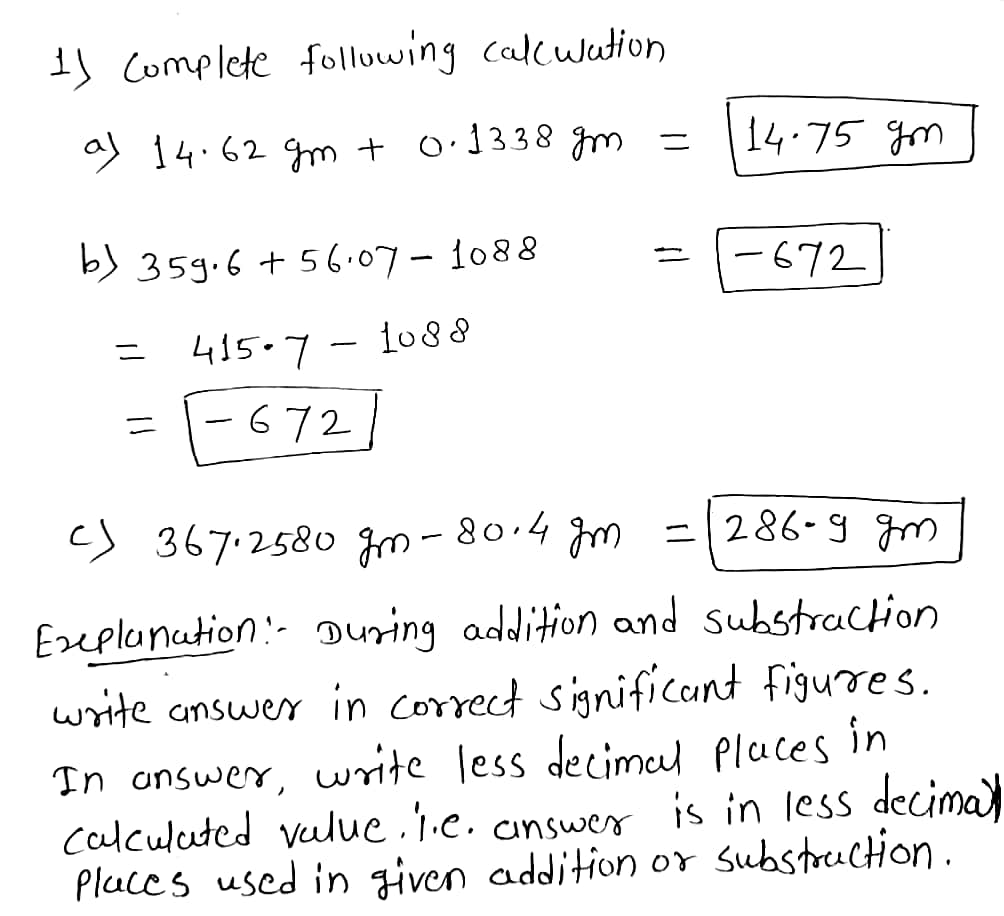 1) Complete following calculation
a) 14.62 gm + 0.1338 gm = 14.75 gm
b) 359.6 + 56.07 - 1088 = -672
= 415.7 - 1088
= -672
c) 367.2580 gm - 80.4 gm = 286.9 gm
Explanation:- During addition and substraction
write answer in correct significant figures.
In answer, write less decimal places in
calculated value. i.e. answer is in less decimal
places used in given addition or substraction.